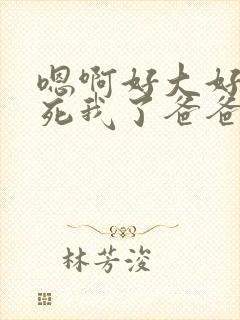 嗯啊好大好
死我了爸爸
林芳浚